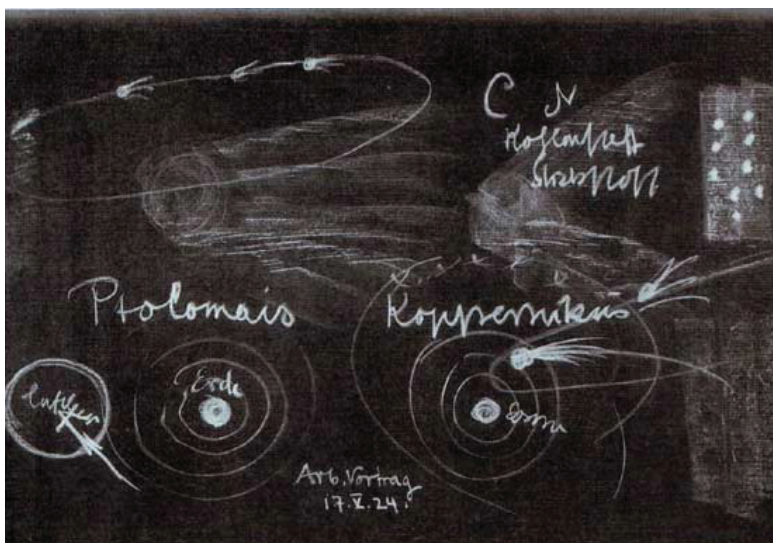 C N
Kohlenstoff
Stickstoff
Ptolomais
Koppernikus
Erde
Sonne
Arb. Vortrag
17.V.24.